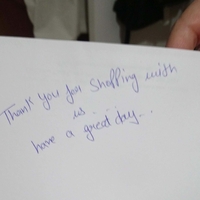 Thank you for shopping with
us
have a great day...